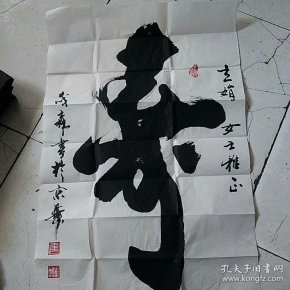 娟女士雅正
寿
森书於京华
孔夫子旧书网